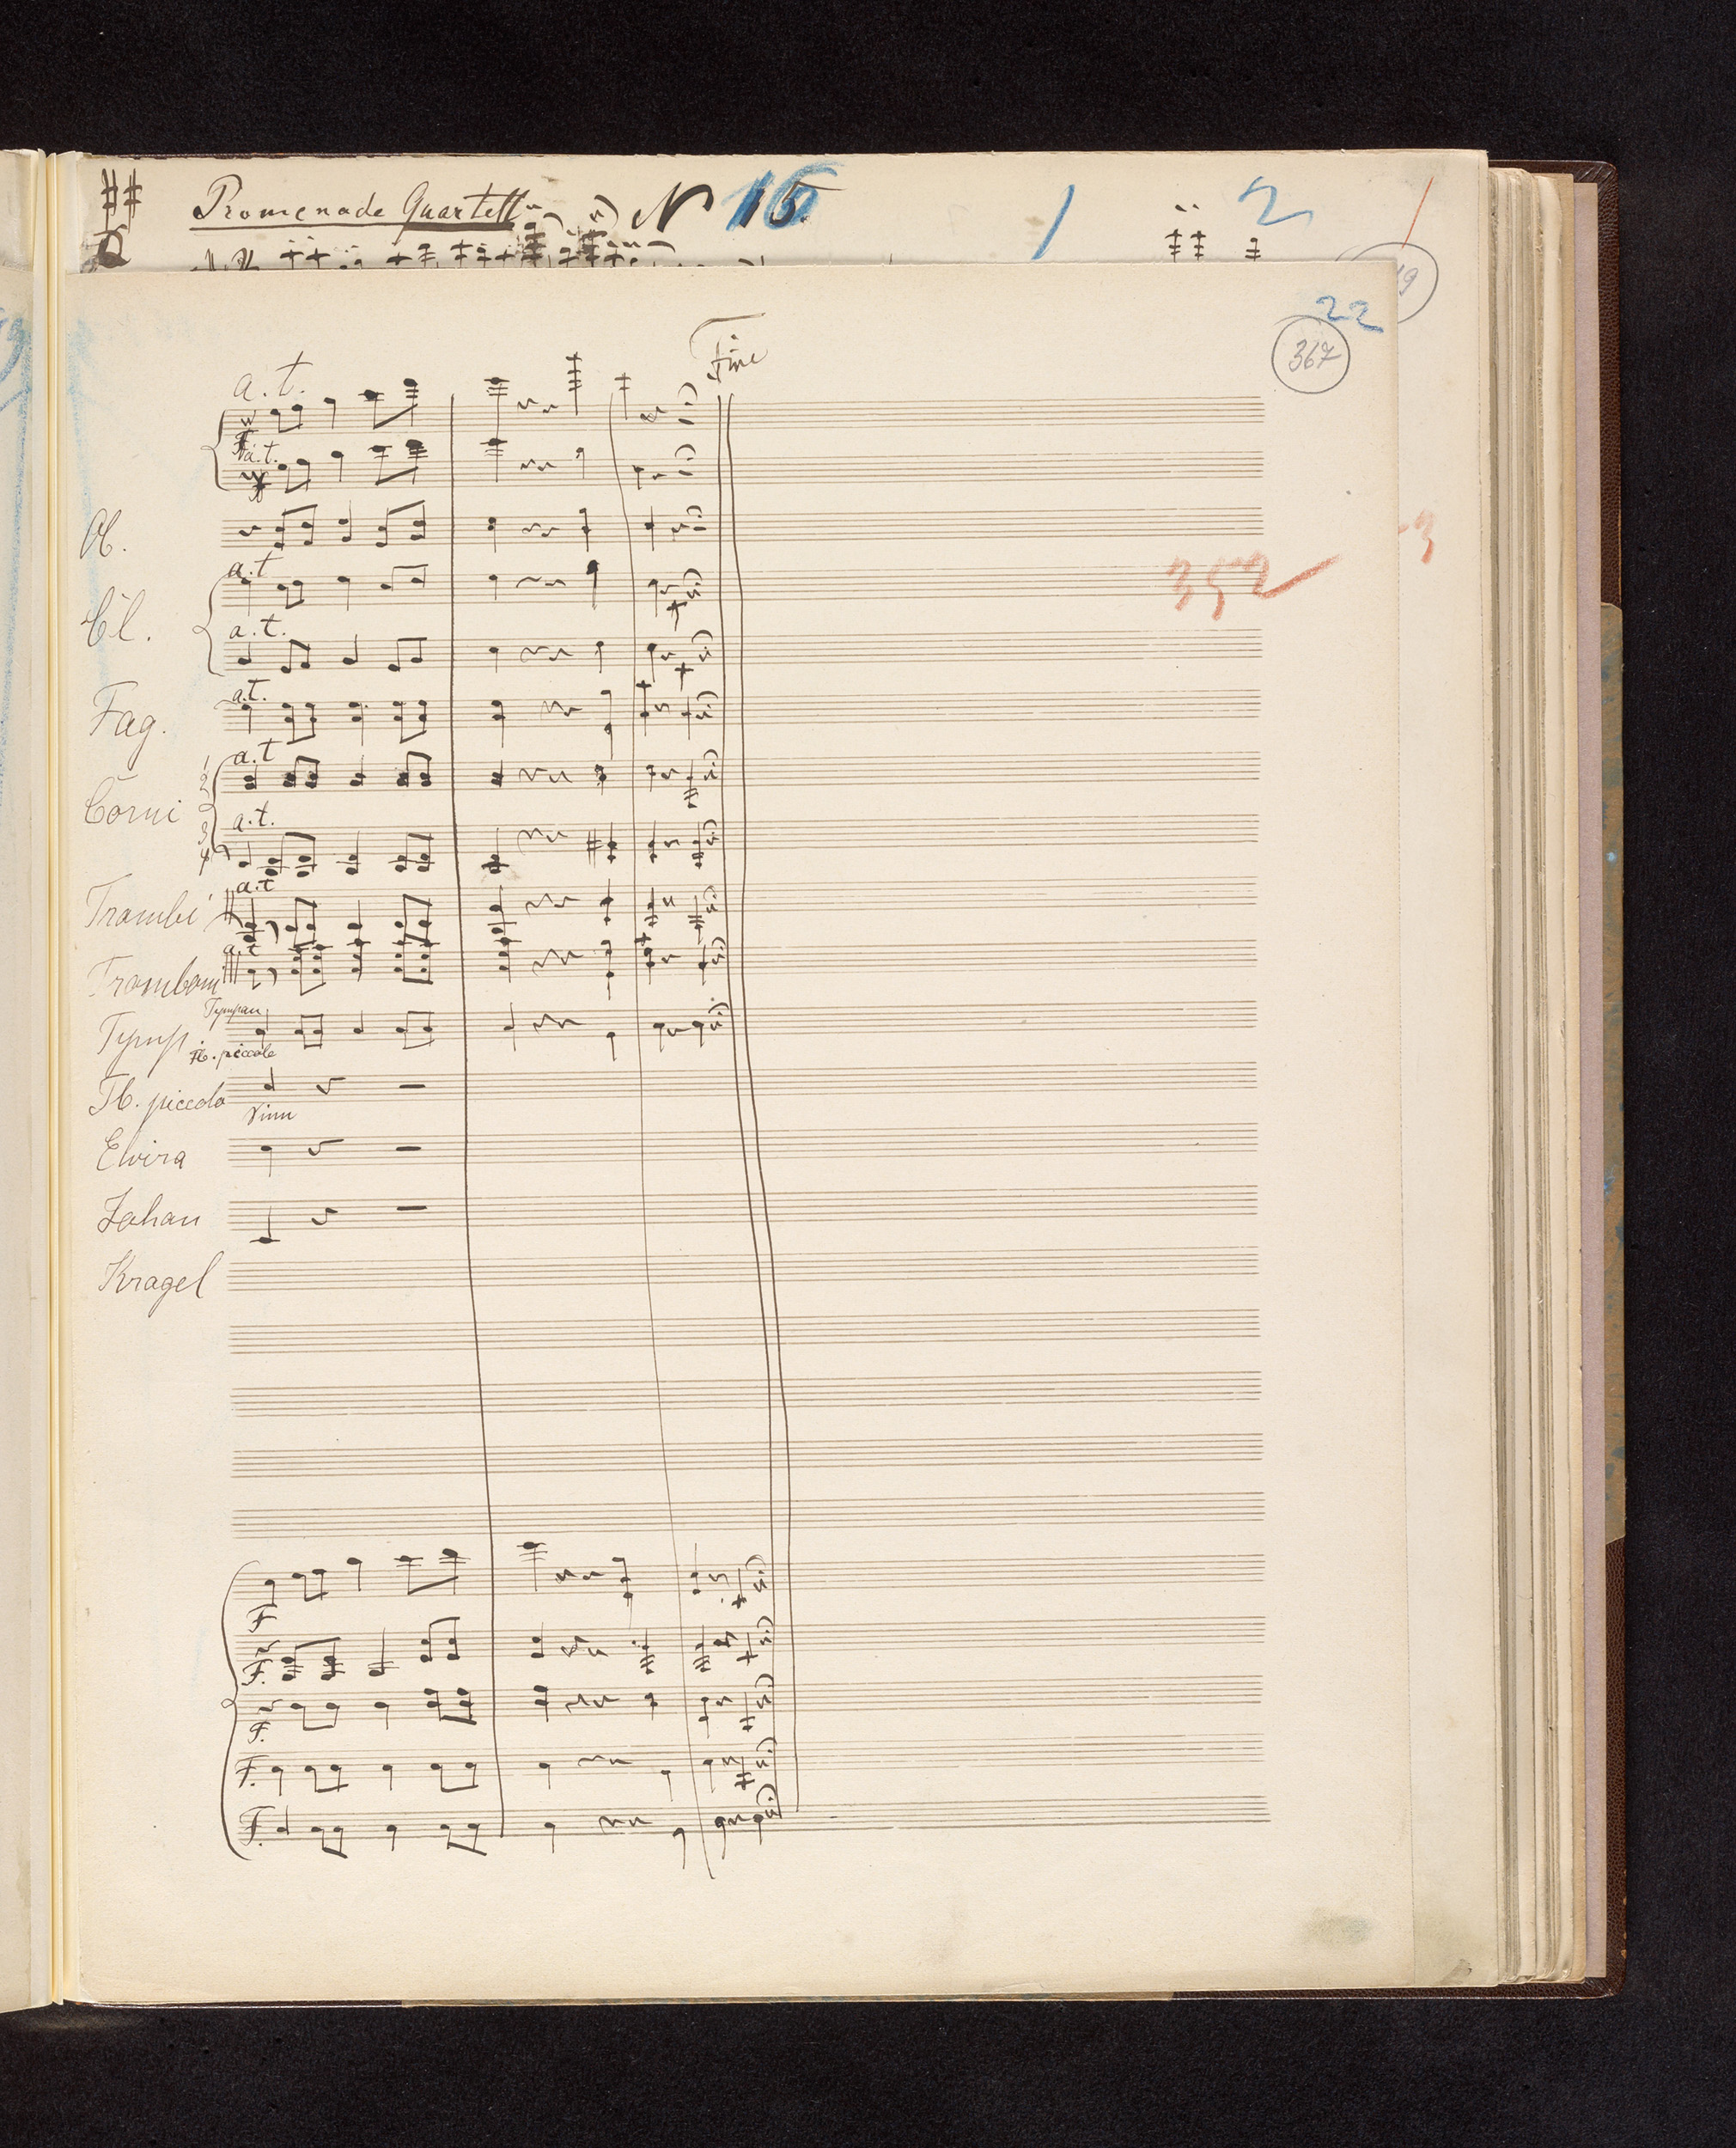 Promenade Quartett N 15
1
2
22
367
Fine
a.t.
a.t.
Ob.
a.t
Cl.
a.t.
a.t.
Fag.
a.t
1
2
Corni
a.t.
3
4
a.t
Trombi
a.t
Tromboni
Tympan
Tymp.
Fl. piccolo
Fl. piccolo
Elvira
Johan
Kragel
352
F
F.
F.
F.
F.